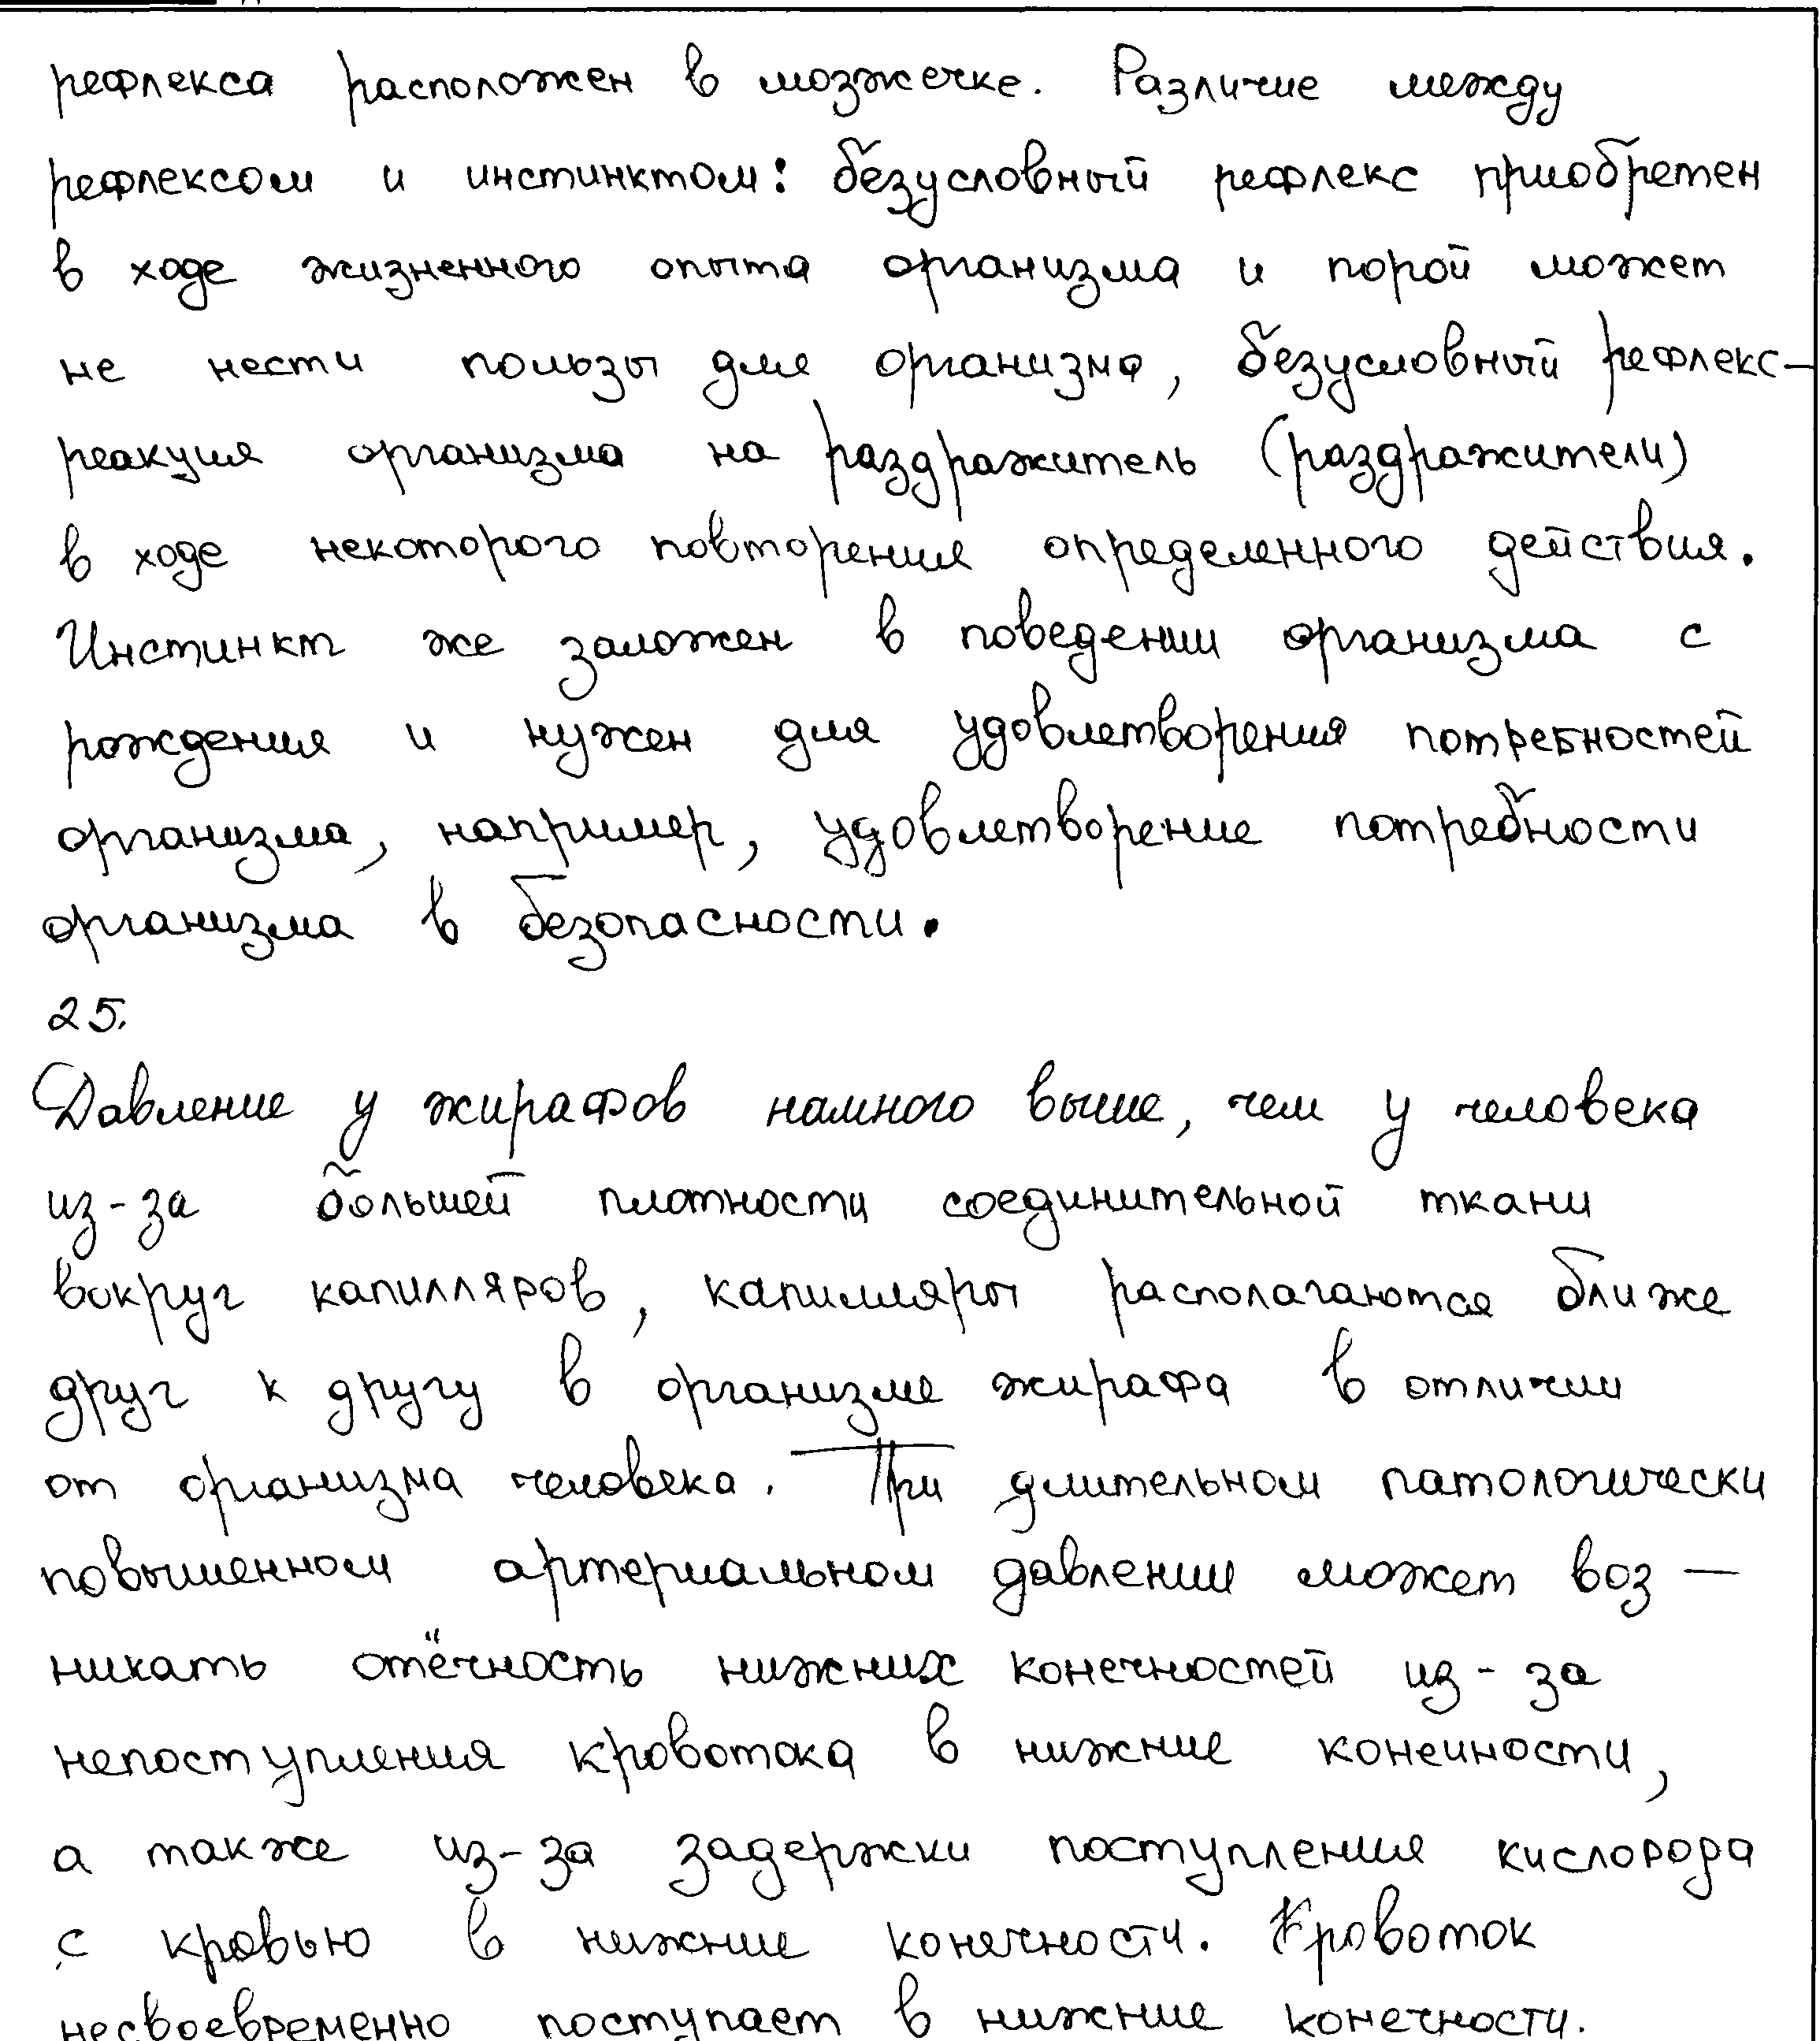 рефлекса расположен в мозжечке. Различие между
рефлексом и инстинктом: безусловный рефлекс приобретен
в ходе жизненного опыта организма и порой может
не нести пользы для организма, безусловный рефлекс-
реакция организма на раздражитель (раздражители)
в ходе некоторого повторения определенного действия.
Инстинкт же заложен в поведении организма с
рождения и нужен для удовлетворения потребностей
организма, например, удовлетворение потребности
организма в безопасности.
25.
Давление у жирафов намного выше, чем у человека
из-за большей плотности соединительной ткани
вокруг капилляров, капилляры располагаются ближе
друг к другу в организме жирафа в отличии
от организма человека. При длительном патологически
повышенном артериальном давлении может воз-
никать отёчность нижних конечностей из-за
непоступления кровотока в нижние конечности,
а также из-за задержки поступления кислорода
с кровью в нижние конечности. Кровоток
несвоевременно поступает в нижние конечности.